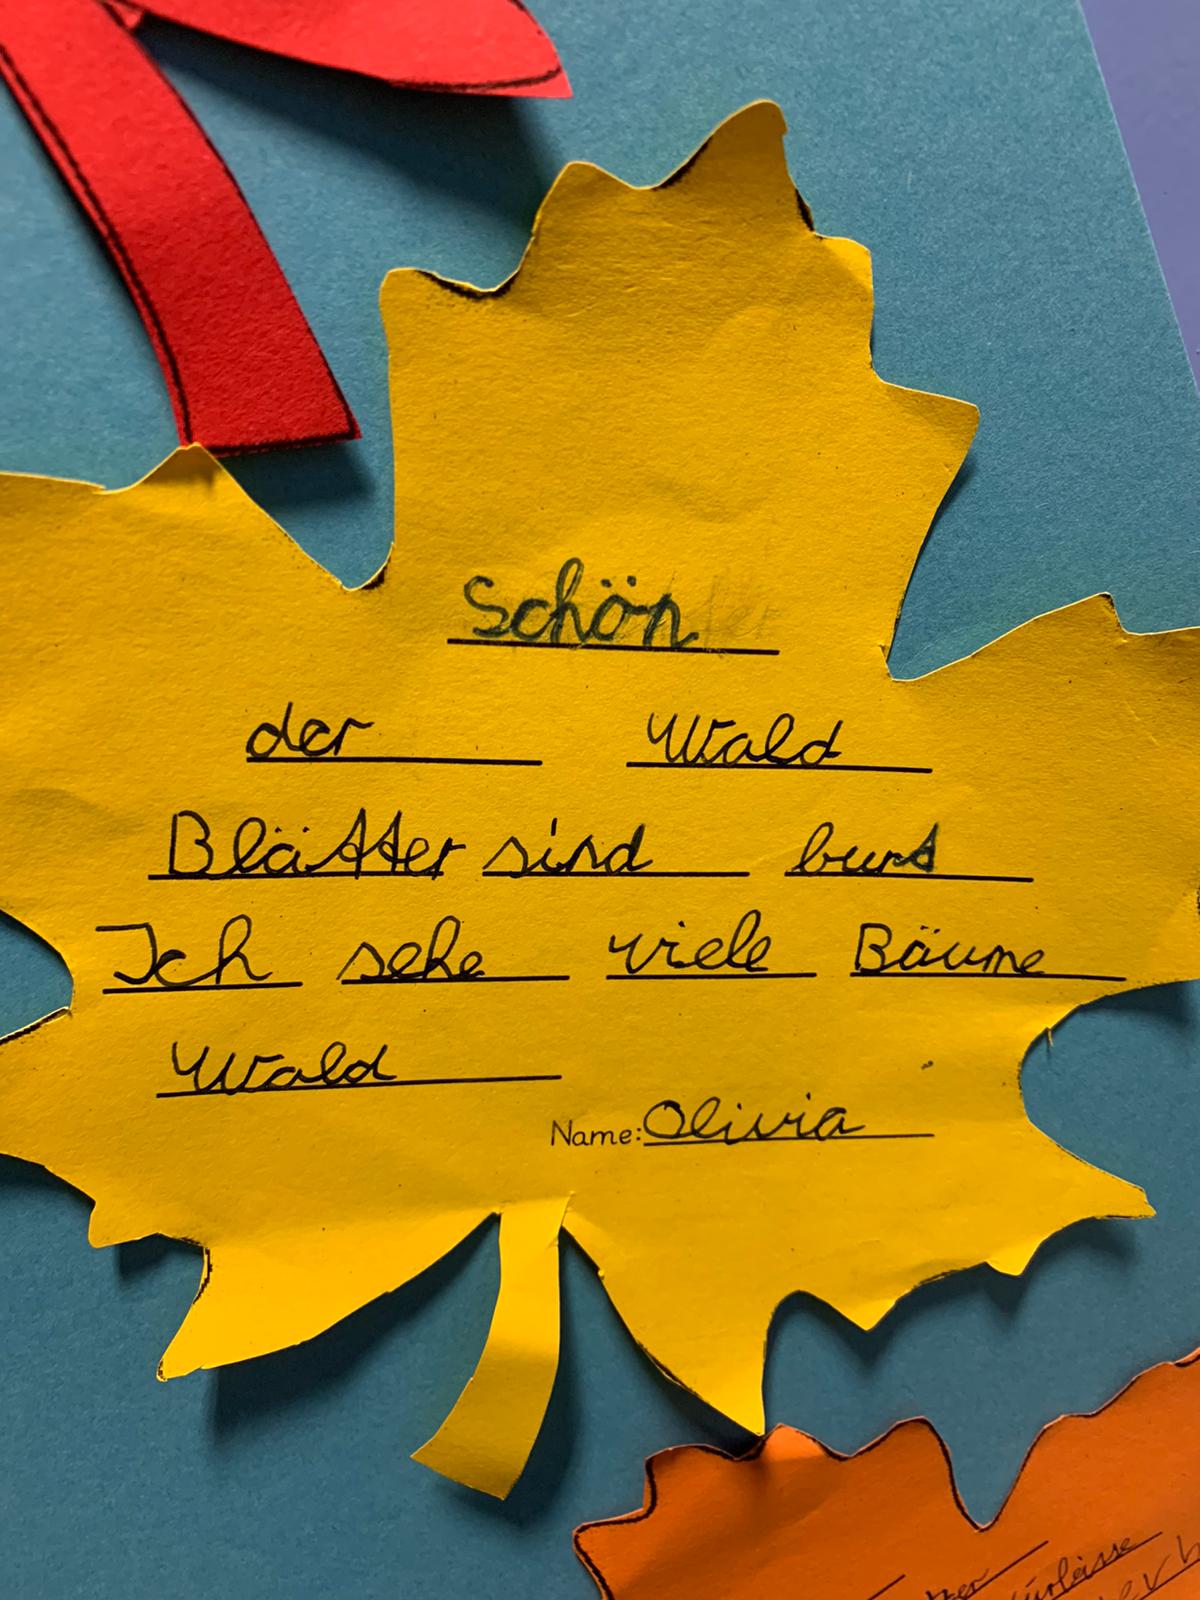 Schön
der Wald
Blätter sind bunt
Ich sehe viele Bäume
Wald
Name: Olivia